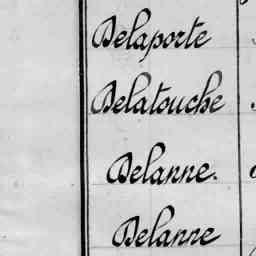 Delaporte
Delatouche
Delanne.
Delanne